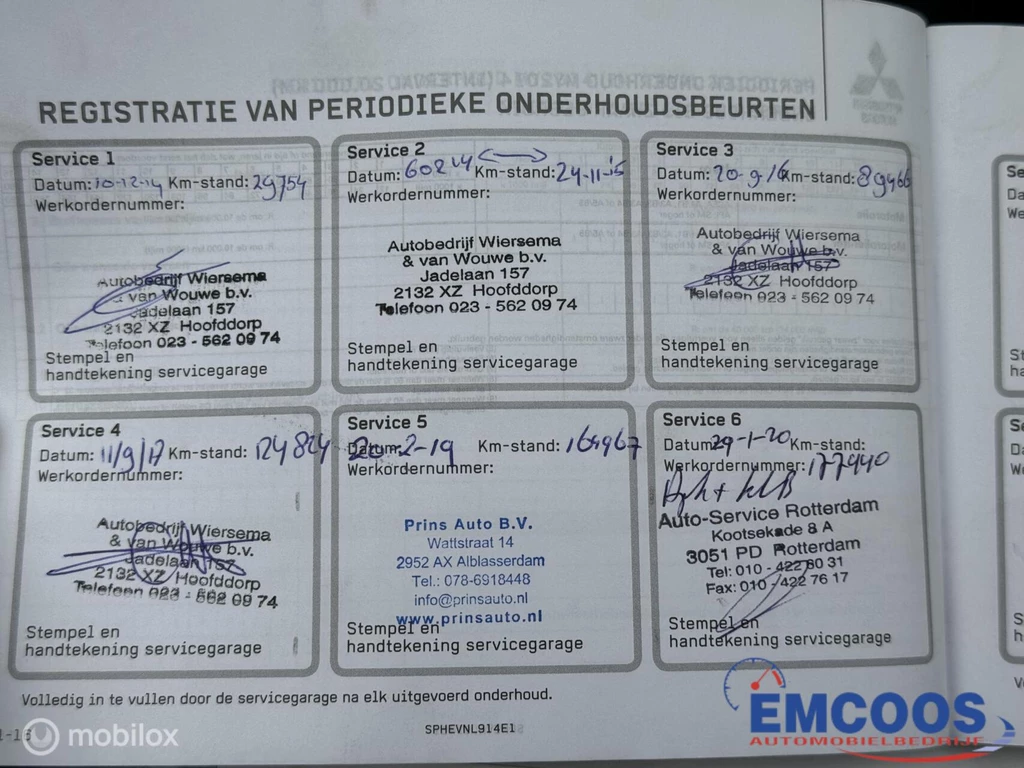 REGISTRATIE VAN PERIODIEKE ONDERHOUDSBEURTEN
Service 1
Datum: 10-12-14 Km-stand: 29754
Werkordernummer:
Autobedrijf Wiersema
& van Wouwe b.v.
Jadelaan 157
2132 XZ Hoofddorp
Telefoon 023 - 562 09 74
Stempel en
handtekening servicegarage
Service 2
Datum: 60214 Km-stand: 24-11-'15
Werkordernummer:
Autobedrijf Wiersema
& van Wouwe b.v.
Jadelaan 157
2132 XZ Hoofddorp
Telefoon 023 - 562 09 74
Stempel en
handtekening servicegarage
Service 3
Datum: 20-9-16 Km-stand: 89466
Werkordernummer:
Autobedrijf Wiersema
& van Wouwe b.v.
Jadelaan 157
2132 XZ Hoofddorp
Telefoon 023 - 562 09 74
Stempel en
handtekening servicegarage
Service 4
Datum: 11/9/17 Km-stand: 124824
Werkordernummer:
Autobedrijf Wiersema
& van Wouwe b.v.
Jadelaan 157
2132 XZ Hoofddorp
Telefoon 023 - 562 09 74
Stempel en
handtekening servicegarage
Service 5
Datum: 20-2-19 Km-stand: 164967
Werkordernummer:
Prins Auto B.V.
Wattstraat 14
2952 AX Alblasserdam
Tel.: 078-6918448
info@prinsauto.nl
www.prinsauto.nl
Stempel en
handtekening servicegarage
Service 6
Datum: 29-1-20 Km-stand:
Werkordernummer: 177440
Auto-Service Rotterdam
Kootsekade 8 A
3051 PD Rotterdam
Tel: 010 - 422 80 31
Fax: 010 - 422 76 17
Stempel en
handtekening servicegarage
Volledig in te vullen door de servicegarage na elk uitgevoerd onderhoud.
SPHEVNL914E1
mobilox
EMCOOS
AUTOMOBIELBEDRIJF